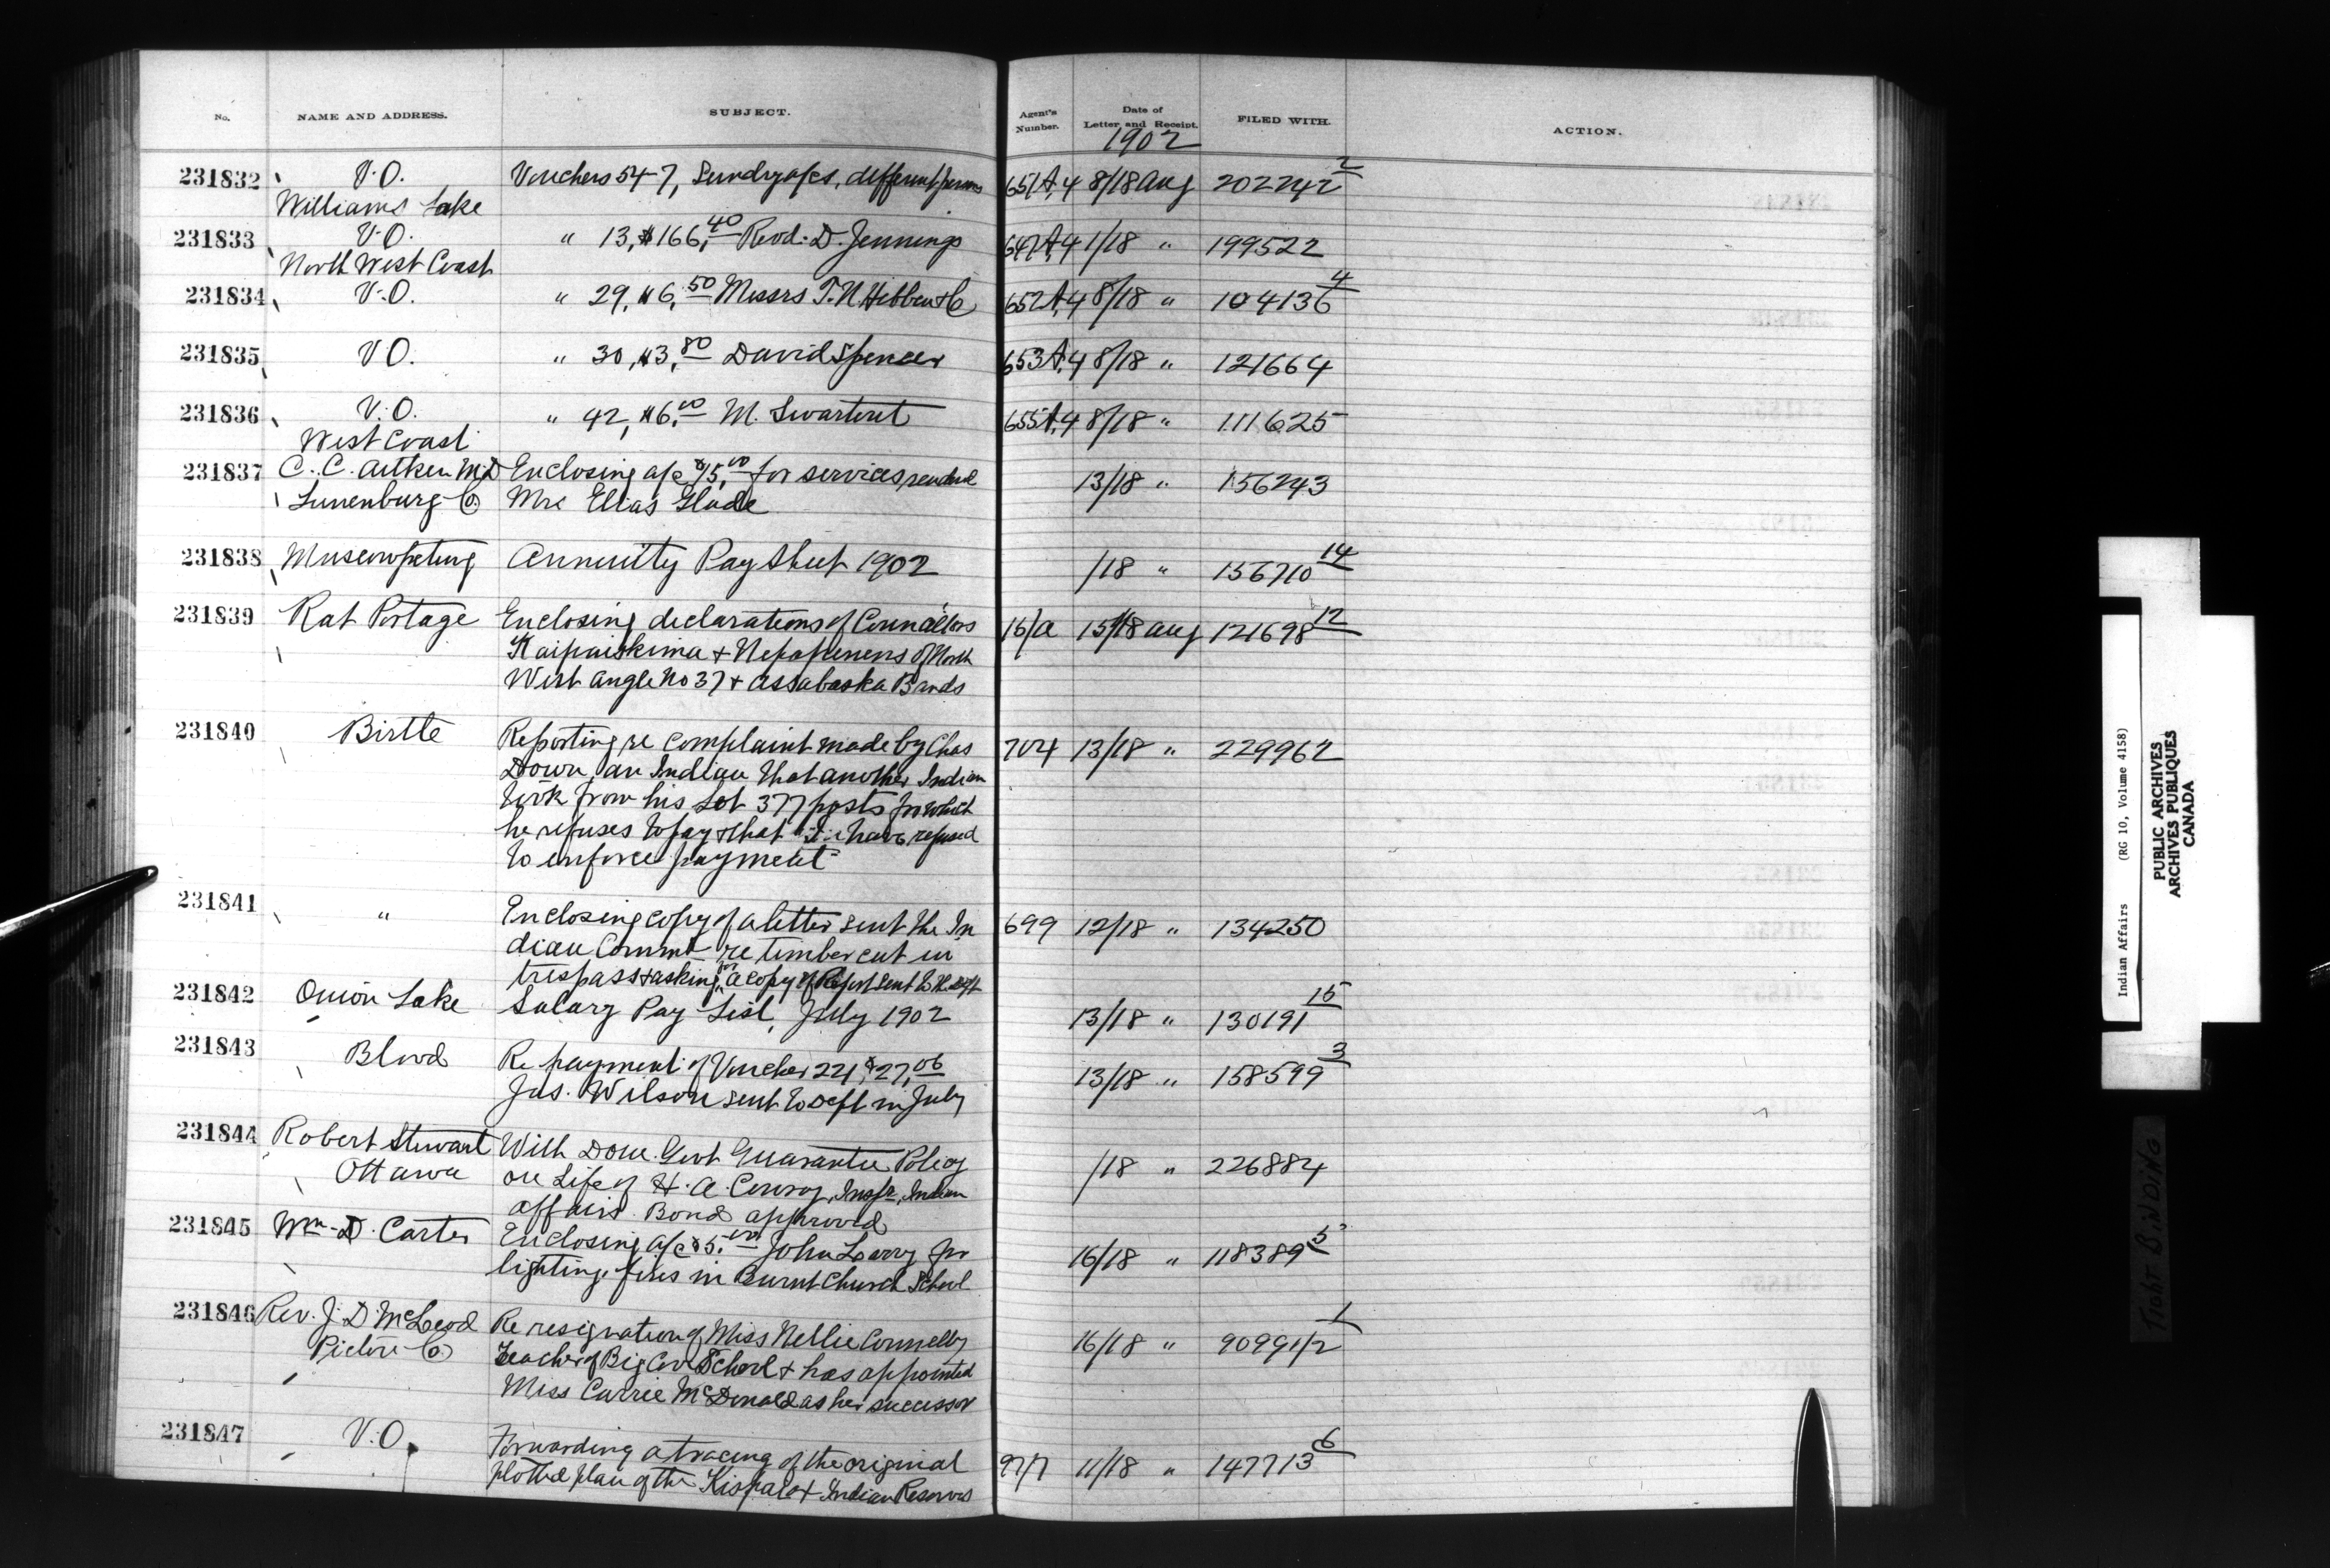 No. NAME AND ADDRESS. SUBJECT. Agent's Number. Date of Letter and Receipt. FILED WITH. ACTION.
1902
231832 V.O. Vouchers 54-7, Sundry a/cs, different persons 651A,4 8/18 Aug 202242 2
Williams Lake
231833 V.O. " 13, $166,40 Revd. D. Jennings 647A,4 1/18 " 199522
North West Coast
231834 V.O. " 29, $6,50 Messrs T.N. Hibben & Co 652A,4 8/18 " 104136 4
231835 V.O. " 30, $3,80 David Spencer 653A,4 8/18 " 121664
231836 V.O. " 42, $6,00 M. Swartout 655A,4 8/18 " 111625
West Coast
231837 C.C. Aitken M.D Enclosing a/c $15,00 for services rendered 13/18 " 156243
Lunenburg Co. Mrs Elias Glode
231838 Muscowpetung Annuitty Pay Sheet 1902 /18 " 156710 14
231839 Rat Portage Enclosing declarations of Councillors 16/a 15/18 Aug 121698 12
Kaipaiskima & Nepapenens of North
West Angle No 37 & Assabaska Bands
231840 Birtle Reporting re complaint made by Chas 704 13/18 " 229962
Down, an Indian that another Indian
took from his Lot 377 posts for which
he refuses to pay & that I have refused
to enforce payment
231841 " Enclosing copy of a letter sent the In 699 12/18 " 134250
dian Commr re timber cut in
trespass & asking for a copy of Report sent to the Dept
231842 Onion Lake Salary Pay List, July 1902 13/18 " 130191 15
231843 Blood Re payment of Voucher 221, $27,06 13/18 " 158599 3
Jas. Wilson sent to Dept in July
231844 Robert Stewart With Dom. Govt Guarantee Policy /18 " 226884
Ottawa on Life of H.A. Conroy, Inspr, Indian
Affairs. Bond approved
231845 Wm. D. Carter Enclosing a/c $5.00 John Leary for 16/18 " 118389 5
lighting fires in Burnt Church School
231846 Rev. J. D. McLeod Re resignation of Miss Nellie Connelly 16/18 " 90991/2 1
Pictou Co Teacher of Big Cove School & has appointed
Miss Carrie McDonald as her successor
231847 V.O. Forwarding a tracing of the original 97/7 11/18 " 147713 6
plotted plan of the Kispaiox Indian Reserves
Indian Affairs (RG 10, Volume 4158)
PUBLIC ARCHIVES
ARCHIVES PUBLIQUES
CANADA
TIGHT BINDING